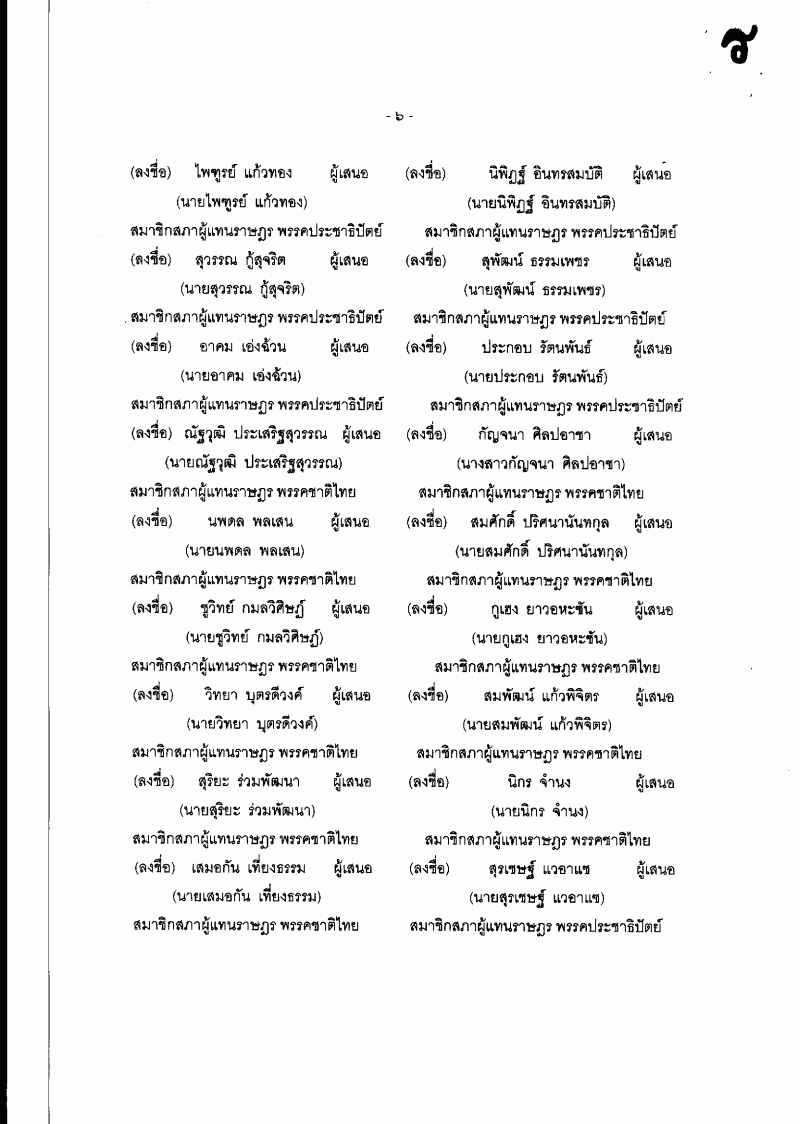 ว
- ๖ -
(ลงชื่อ) ไพฑูรย์ แก้วทอง ผู้เสนอ (ลงชื่อ) นิพิฏฐ์ อินทรสมบัติ ผู้เสนอ
(นายไพฑูรย์ แก้วทอง) (นายนิพิฏฐ์ อินทรสมบัติ)
สมาชิกสภาผู้แทนราษฎร พรรคประชาธิปัตย์ สมาชิกสภาผู้แทนราษฎร พรรคประชาธิปัตย์
(ลงชื่อ) สุวรรณ กู้สุจริต ผู้เสนอ (ลงชื่อ) สุพัฒน์ ธรรมเพชร ผู้เสนอ
(นายสุวรรณ กู้สุจริต) (นายสุพัฒน์ ธรรมเพชร)
สมาชิกสภาผู้แทนราษฎร พรรคประชาธิปัตย์ สมาชิกสภาผู้แทนราษฎร พรรคประชาธิปัตย์
(ลงชื่อ) อาคม เอ่งฉ้วน ผู้เสนอ (ลงชื่อ) ประกอบ รัตนพันธ์ ผู้เสนอ
(นายอาคม เอ่งฉ้วน) (นายประกอบ รัตนพันธ์)
สมาชิกสภาผู้แทนราษฎร พรรคประชาธิปัตย์ สมาชิกสภาผู้แทนราษฎร พรรคประชาธิปัตย์
(ลงชื่อ) ณัฐวุฒิ ประเสริฐสุวรรณ ผู้เสนอ (ลงชื่อ) กัญจนา ศิลปอาชา ผู้เสนอ
(นายณัฐวุฒิ ประเสริฐสุวรรณ) (นางสาวกัญจนา ศิลปอาชา)
สมาชิกสภาผู้แทนราษฎร พรรคชาติไทย สมาชิกสภาผู้แทนราษฎร พรรคชาติไทย
(ลงชื่อ) นพดล พลเสน ผู้เสนอ (ลงชื่อ) สมศักดิ์ ปริศนานันทกุล ผู้เสนอ
(นายนพดล พลเสน) (นายสมศักดิ์ ปริศนานันทกุล)
สมาชิกสภาผู้แทนราษฎร พรรคชาติไทย สมาชิกสภาผู้แทนราษฎร พรรคชาติไทย
(ลงชื่อ) ชูวิทย์ กมลวิศิษฎ์ ผู้เสนอ (ลงชื่อ) กูเฮง ยาวอหะซัน ผู้เสนอ
(นายชูวิทย์ กมลวิศิษฎ์) (นายกูเฮง ยาวอหะซัน)
สมาชิกสภาผู้แทนราษฎร พรรคชาติไทย สมาชิกสภาผู้แทนราษฎร พรรคชาติไทย
(ลงชื่อ) วิทยา บุตรดีวงค์ ผู้เสนอ (ลงชื่อ) สมพัฒน์ แก้วพิจิตร ผู้เสนอ
(นายวิทยา บุตรดีวงค์) (นายสมพัฒน์ แก้วพิจิตร)
สมาชิกสภาผู้แทนราษฎร พรรคชาติไทย สมาชิกสภาผู้แทนราษฎร พรรคชาติไทย
(ลงชื่อ) สุริยะ ร่วมพัฒนา ผู้เสนอ (ลงชื่อ) นิกร จำนง ผู้เสนอ
(นายสุริยะ ร่วมพัฒนา) (นายนิกร จำนง)
สมาชิกสภาผู้แทนราษฎร พรรคชาติไทย สมาชิกสภาผู้แทนราษฎร พรรคชาติไทย
(ลงชื่อ) เสมอกัน เที่ยงธรรม ผู้เสนอ (ลงชื่อ) สุรเชษฐ์ แวอาแซ ผู้เสนอ
(นายเสมอกัน เที่ยงธรรม) (นายสุรเชษฐ์ แวอาแซ)
สมาชิกสภาผู้แทนราษฎร พรรคชาติไทย สมาชิกสภาผู้แทนราษฎร พรรคประชาธิปัตย์